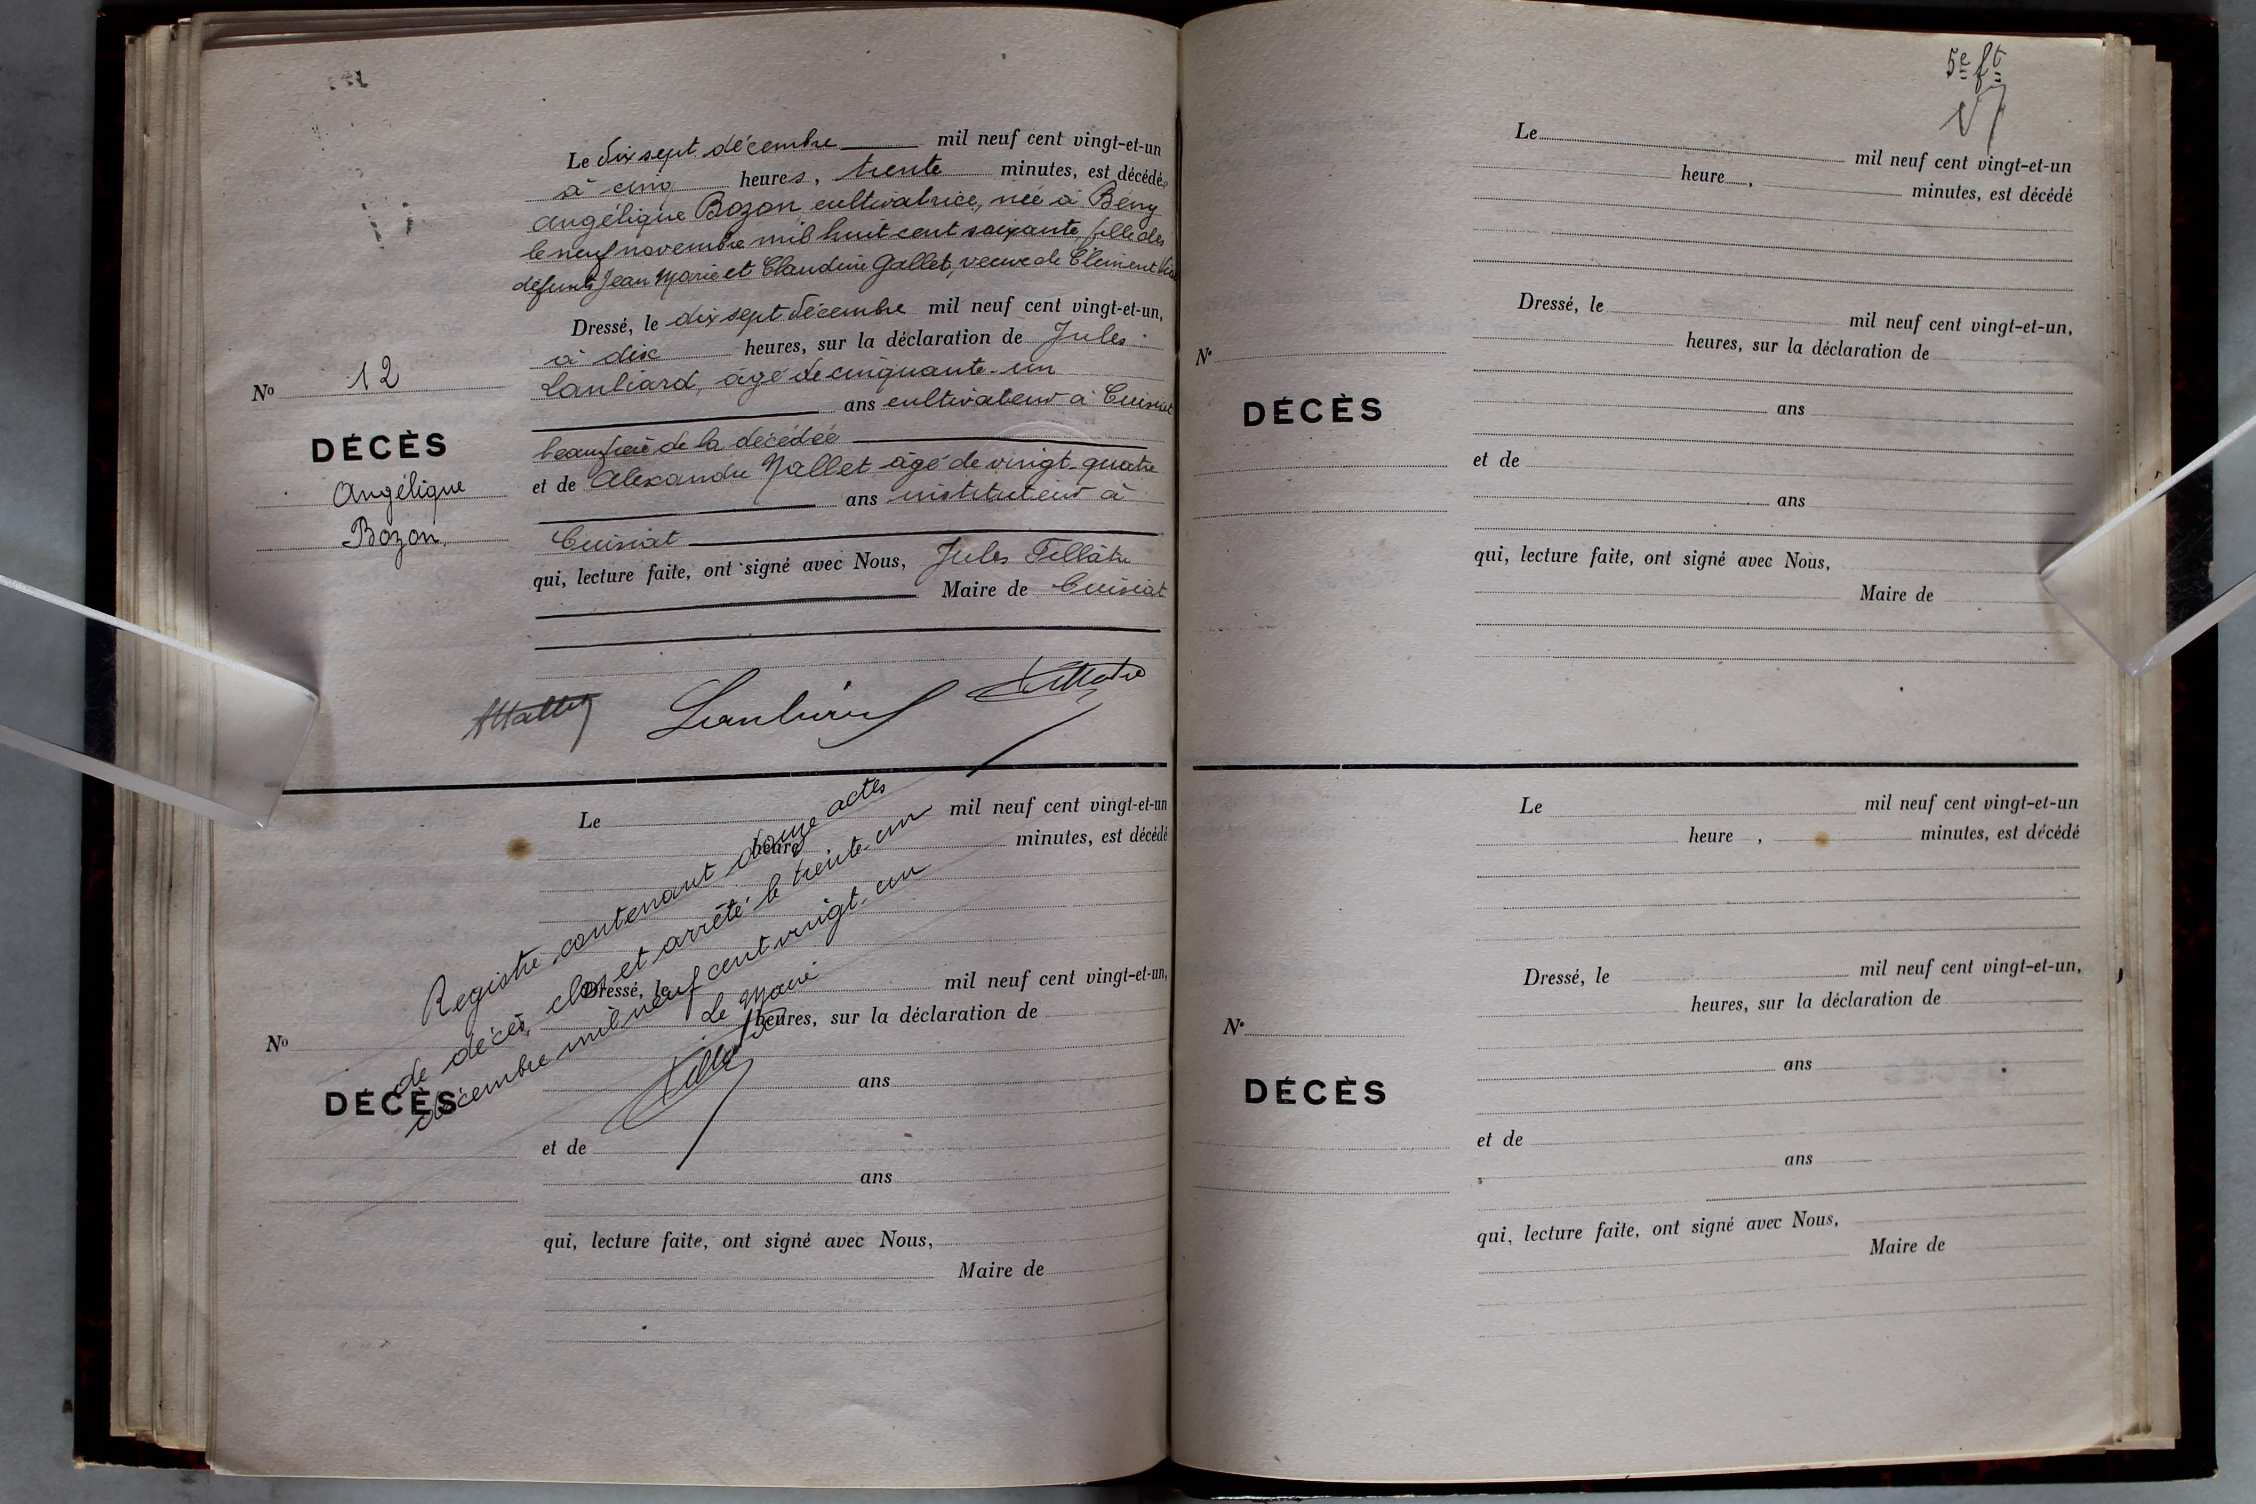 Le dix sept décembre mil neuf cent vingt-et-un
à cinq heures, trente minutes, est décédée
Angélique Bozon, cultivatrice, née à Bény
le neuf novembre mil huit cent soixante, fille des
défunts Jean Marie et Claudine Gallet, veuve de Clément
Dressé, le dix sept décembre mil neuf cent vingt-et-un,
à dix heures, sur la déclaration de Jules
Lanliard, âgé de cinquante-un
ans cultivateur à Cuisiat
beaufrère de la décédée
et de Alexandre Mallet âgé de vingt-quatre
ans instituteur à
Cuisiat
qui, lecture faite, ont signé avec Nous, Jules Tellâtre
Maire de Cuisiat
No 12
DÉCÈS
Angélique
Bozon
AMallet
Le mil neuf cent vingt-et-un
heure minutes, est décédé
Dressé, le mil neuf cent vingt-et-un,
heures, sur la déclaration de
ans
et de
ans
qui, lecture faite, ont signé avec Nous,
Maire de
No
DÉCÈS
Registre contenant douze actes
de décès, clos et arrêté le trente-un
décembre mil neuf cent vingt-un
Le Maire
5e ft
Le mil neuf cent vingt-et-un
heure , minutes, est décédé
Dressé, le mil neuf cent vingt-et-un,
heures, sur la déclaration de
ans
et de
ans
qui, lecture faite, ont signé avec Nous,
Maire de
No
DÉCÈS
Le mil neuf cent vingt-et-un
heure , minutes, est décédé
Dressé, le mil neuf cent vingt-et-un,
heures, sur la déclaration de
ans
et de
ans
qui, lecture faite, ont signé avec Nous,
Maire de
No
DÉCÈS